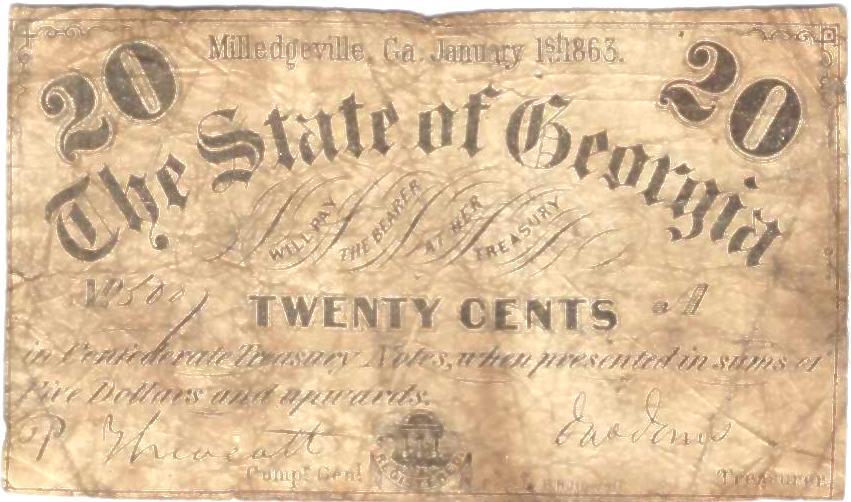 Milledgeville, Ga. January 1st 1863.
20 20
The State of Georgia
WILL PAY THE BEARER AT HER TREASURY
TWENTY CENTS A
in Confederate Treasury Notes, when presented in sums of
Five Dollars and upwards.
P Thweatt Jno Jones
REGISTERED
Compt. Genl. Treasurer